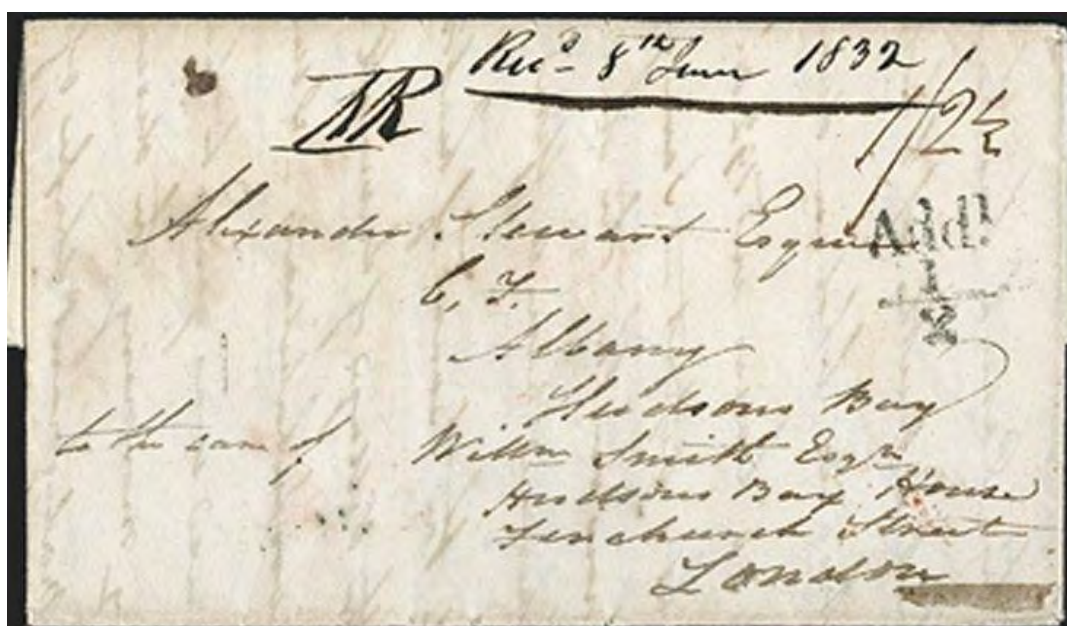 Recd 8th June 1832
1/2½
Alexander Stewart Esquire
Addl
½
C, F.
Albany
Hudsons Bay
to the care of Willm Smith Esqre
Hudsons Bay House
Fenchurch Street
London